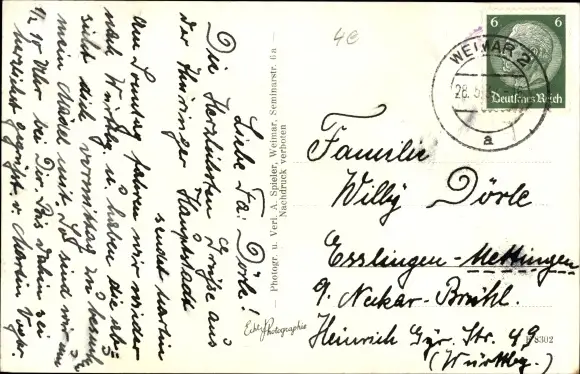 Liebe Fa. Dörle!
Die herzlichsten Grüße aus
der Thüringer Hauptstadt
sendet Martin
Am Sonntag fahren wir wieder
nach Württbg. u. haben die Ab=
sicht dich vormittag zu besuch
mein Mädel mit. So sind wir um
1/2 10 Uhr bei Dir. Bis dahin sei
herzlichst gegrüßt v. Martin
Photogr. u. Verl. A. Spieler, Weimar, Seminarstr. 6a
Nachdruck verboten
Echte Photographie
4e
6 6
Deutsches Reich
WEIMAR 2
28. 5.
a
Familie
Willy Dörle
Esslingen-Mettingen
a. Neckar-Brühl.
Heinrich Str. 49
(Württbg.)
8302